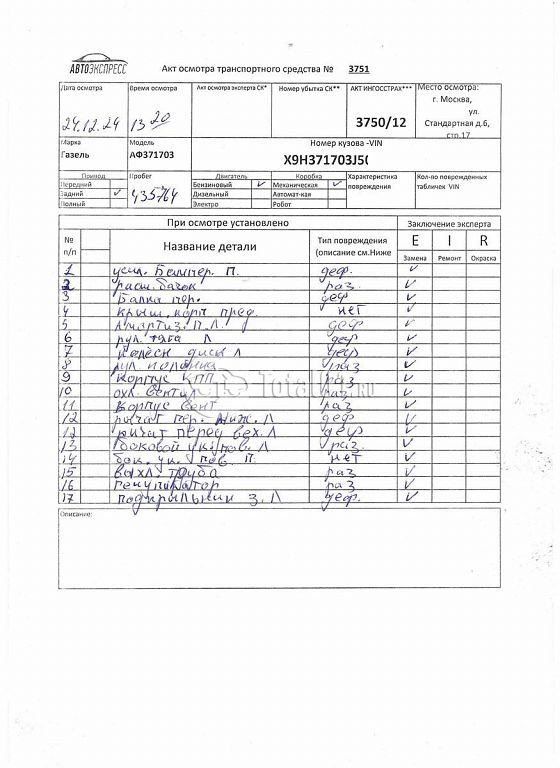 АВТОЭКСПРЕСС
Акт осмотра транспортного средства № 3751
Дата осмотра Время осмотра Акт осмотра эксперта СК* Номер убытка СК** АКТ ИНГОССТРАХ*** Место осмотра:
24.12.24 13 20 3750/12 г. Москва,
ул.
Стандартная д.6,
стр.17
Марка Модель Номер кузова -VIN
Газель АФ371703 X9H371703J5
Привод Пробег Двигатель Коробка Характеристика повреждения Кол-во поврежденных табличек VIN
Передний Бензиновый ✓ Механическая ✓
Задний ✓ 435764 Дизельный Автомат-кая
Полный Электро Робот
При осмотре установлено Заключение эксперта
№ п/п Название детали Тип повреждения (описание см.Ниже E I R
Замена Ремонт Окраска
1 усил. Бампер. П. деф. ✓
2 расш. бачок раз. ✓
3 Балка пер. деф ✓
4 крыш. пред. нет ✓
5 Амартиз. П.Л. деф ✓
6 рул. тяга Л деф ✓
7 колесн диск Л деф ✓
8 рул. раз ✓
9 Корпус КПП раз ✓
10 охл. Вентил раз ✓
11 Корпус Вент раз ✓
12 рычаг пер. ниж. Л деф ✓
12 рычаг перед вех. Л деф ✓
13 боковой ук. пов. Л раз. ✓
14 бок. ук. пов. П. нет ✓
15 выхл. труба раз ✓
16 рекуператор раз ✓
17 подкрыльник З. Л деф. ✓
Описание: